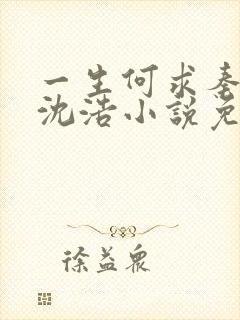 一生何求秦
沈浩小說免
徐益眾